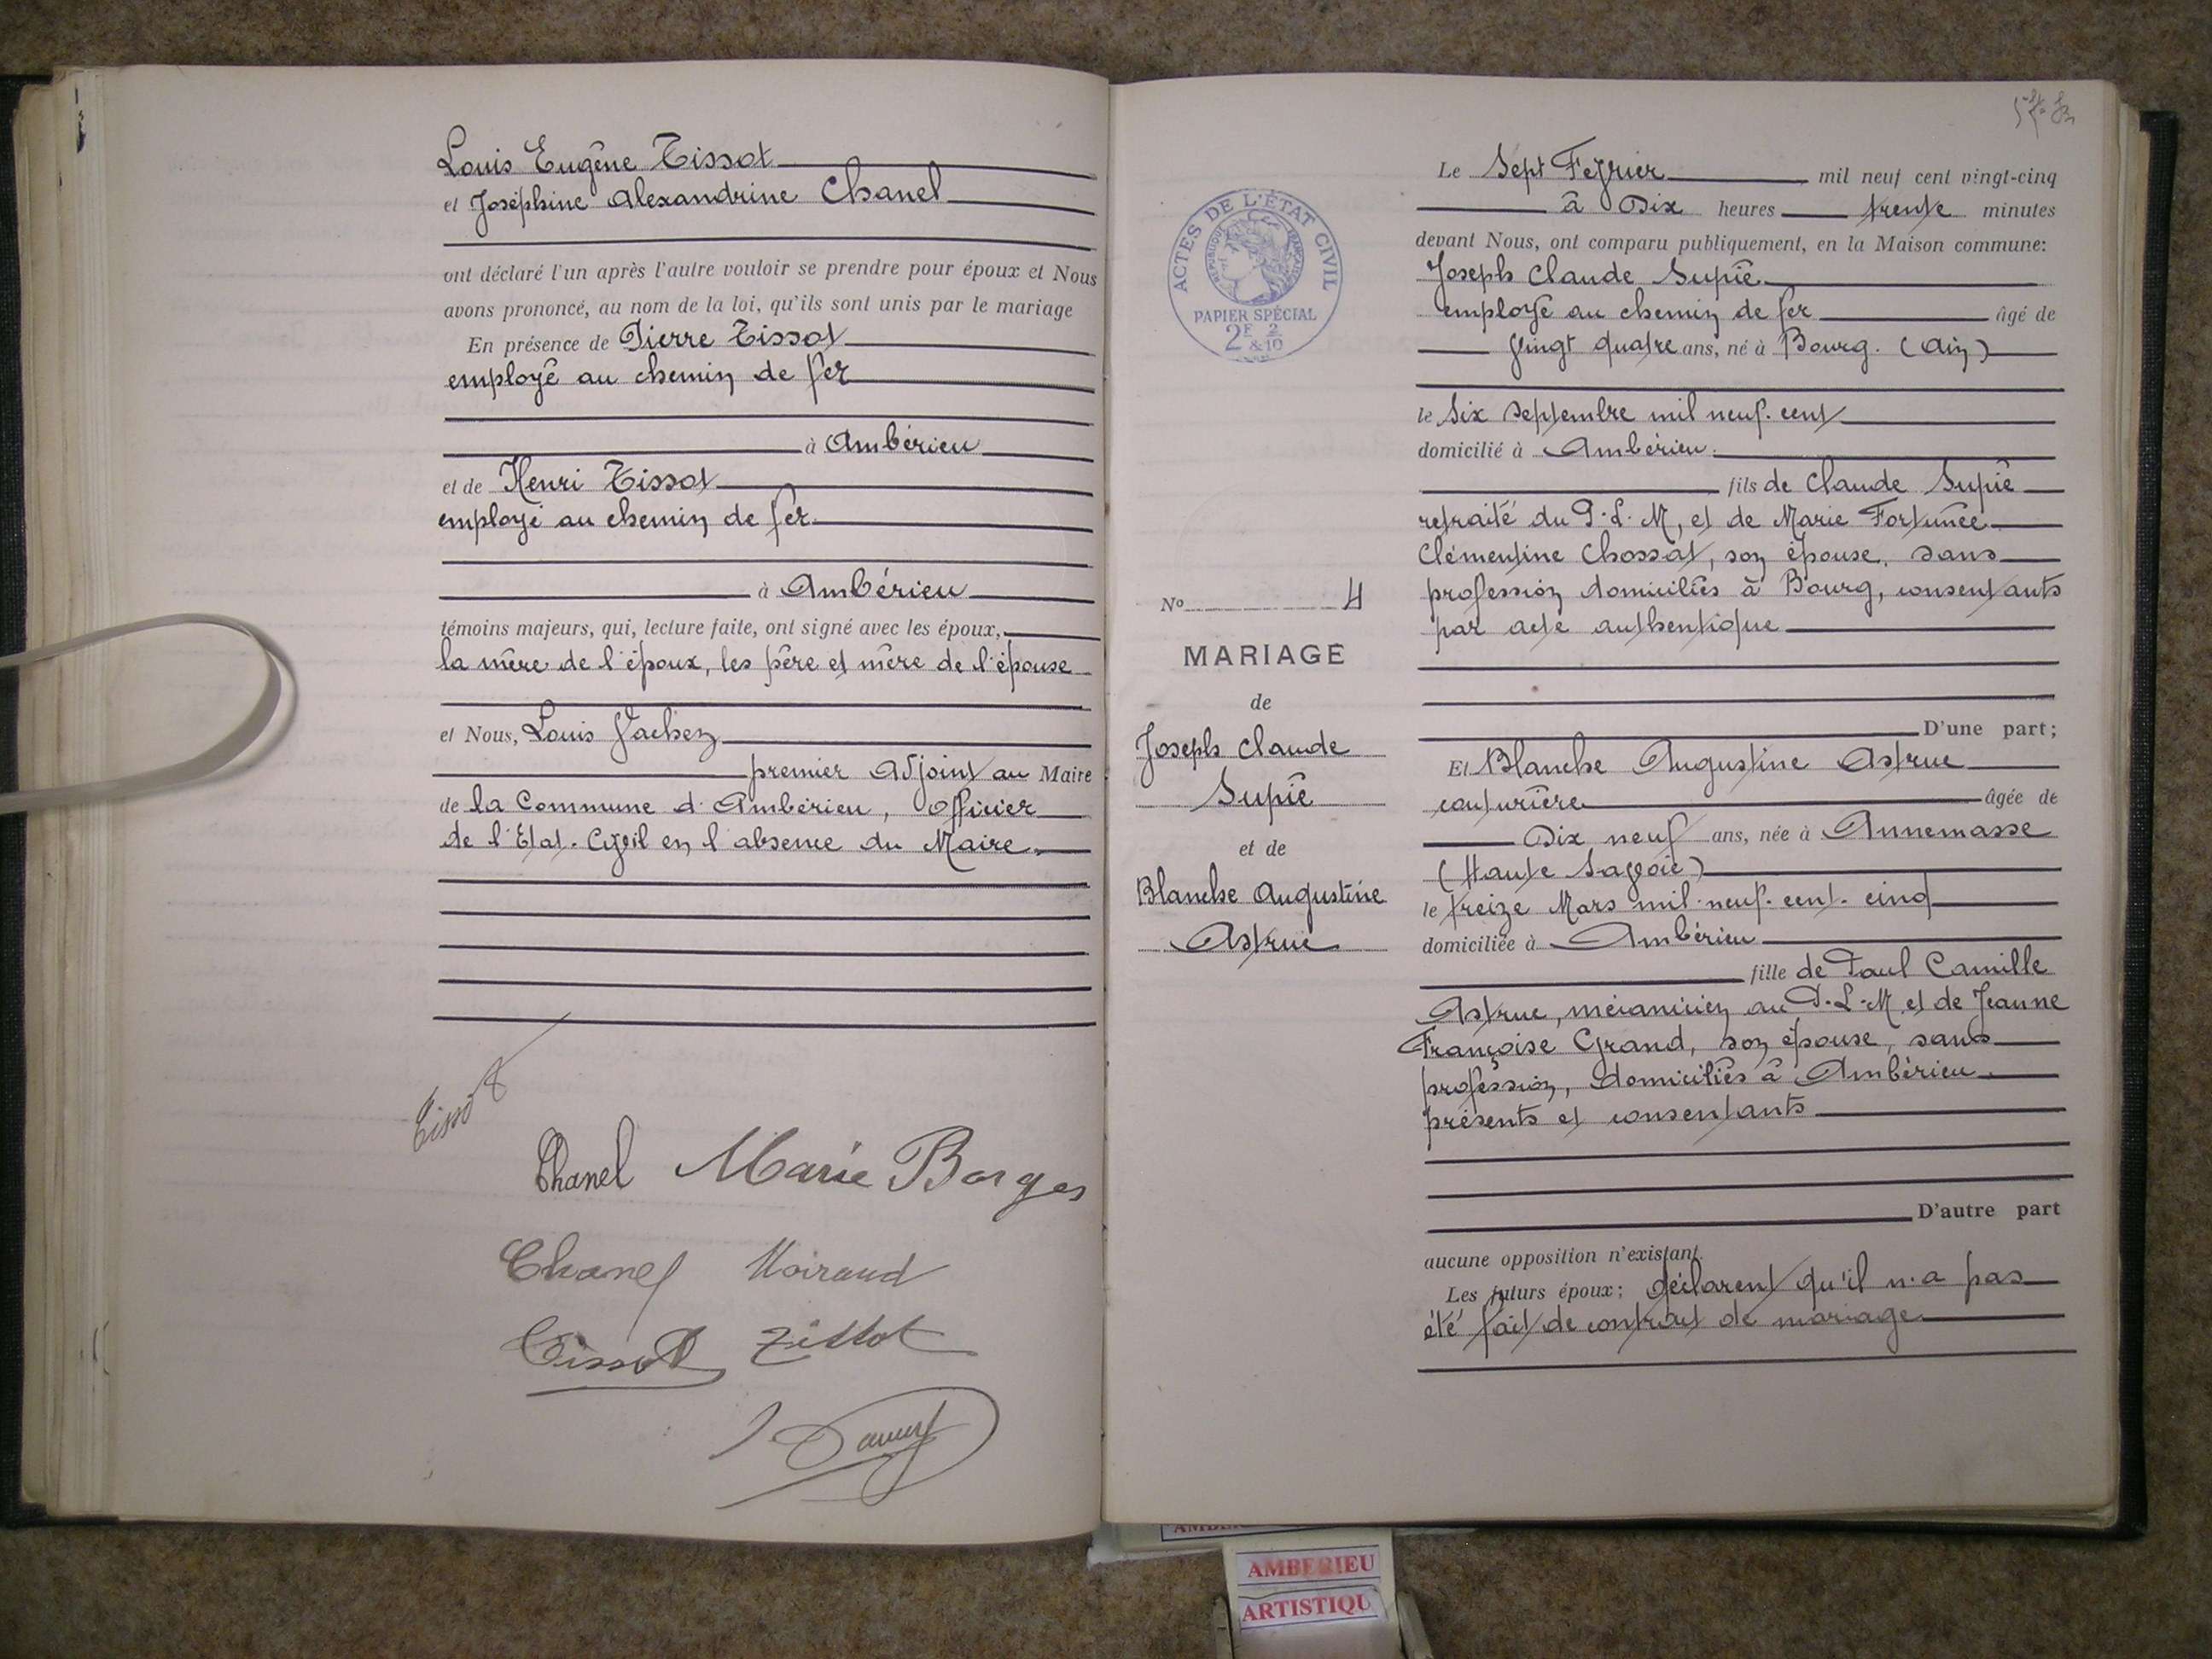 Louis Eugêne Tissot
et Joséphine Alexandrine Chanel
ont déclaré l'un après l'autre vouloir se prendre pour époux et Nous
avons prononcé, au nom de la loi, qu'ils sont unis par le mariage
En présence de Pierre Tissot
employé au chemin de fer
à Ambérieu
et de Henri Tissot
employé au chemin de fer
à Ambérieu
témoins majeurs, qui, lecture faite, ont signé avec les époux,
la mère de l'époux, les père et mère de l'épouse
et Nous, Louis Vachez
premier Adjoint au Maire
de la Commune d'Ambérieu, officier
de l'Etat-Civil en l'absence du Maire.
Tissot
Chanel Marie Borges
Chanel Moiraud
Tissot Tissot
ACTES DE L'ÉTAT CIVIL
RÉPUBLIQUE FRANÇAISE
PAPIER SPÉCIAL
2F 2
&10
No 4
MARIAGE
de
Joseph Claude
Supié
et de
Blanche Augustine
Astrue
Le Sept Février mil neuf cent vingt-cinq
à Dix heures trente minutes
devant Nous, ont comparu publiquement, en la Maison commune:
Joseph Claude Supié
employé au chemin de fer âgé de
Vingt quatre ans, né à Bourg. (Ain)
le Six Septembre mil neuf. cent
domicilié à Ambérieu.
fils de Claude Supié
retraité du P.L.M, et de Marie Fortunée
Clémentine Chossat, son épouse, sans
profession domiciliés à Bourg, consentants
par acte authentique
D'une part;
Et Blanche Augustine Astrue
couturière âgée de
Dix neuf ans, née à Annemasse
(Haute Savoie)
le treize Mars mil-neuf-cent-cinq
domiciliée à Ambérieu
fille de Paul Camille
Astrue, mécanicien au P.L.M et de Jeanne
Françoise Grand, son épouse, sans
profession, domiciliés à Ambérieu.
présents et consentants
D'autre part
aucune opposition n'existant.
Les futurs époux; déclarent qu'il n'a pas
été fait de contrat de mariage
AMBERIEU
ARTISTIQU